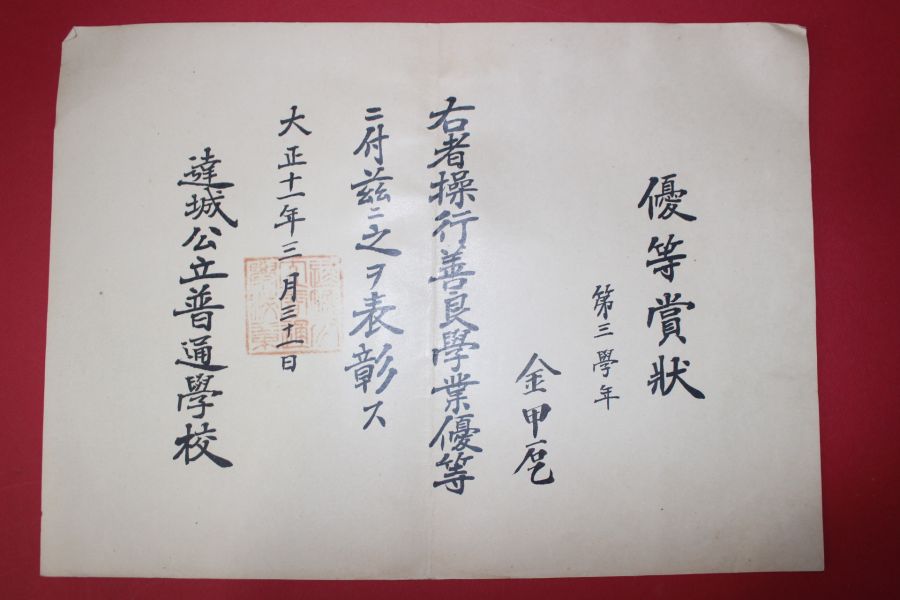 優等賞狀
第三學年
金甲乭
右者操行善良學業優等
ニ付茲ニ之ヲ表彰ス
大正十一年三月三十一日
達城公立普通學校